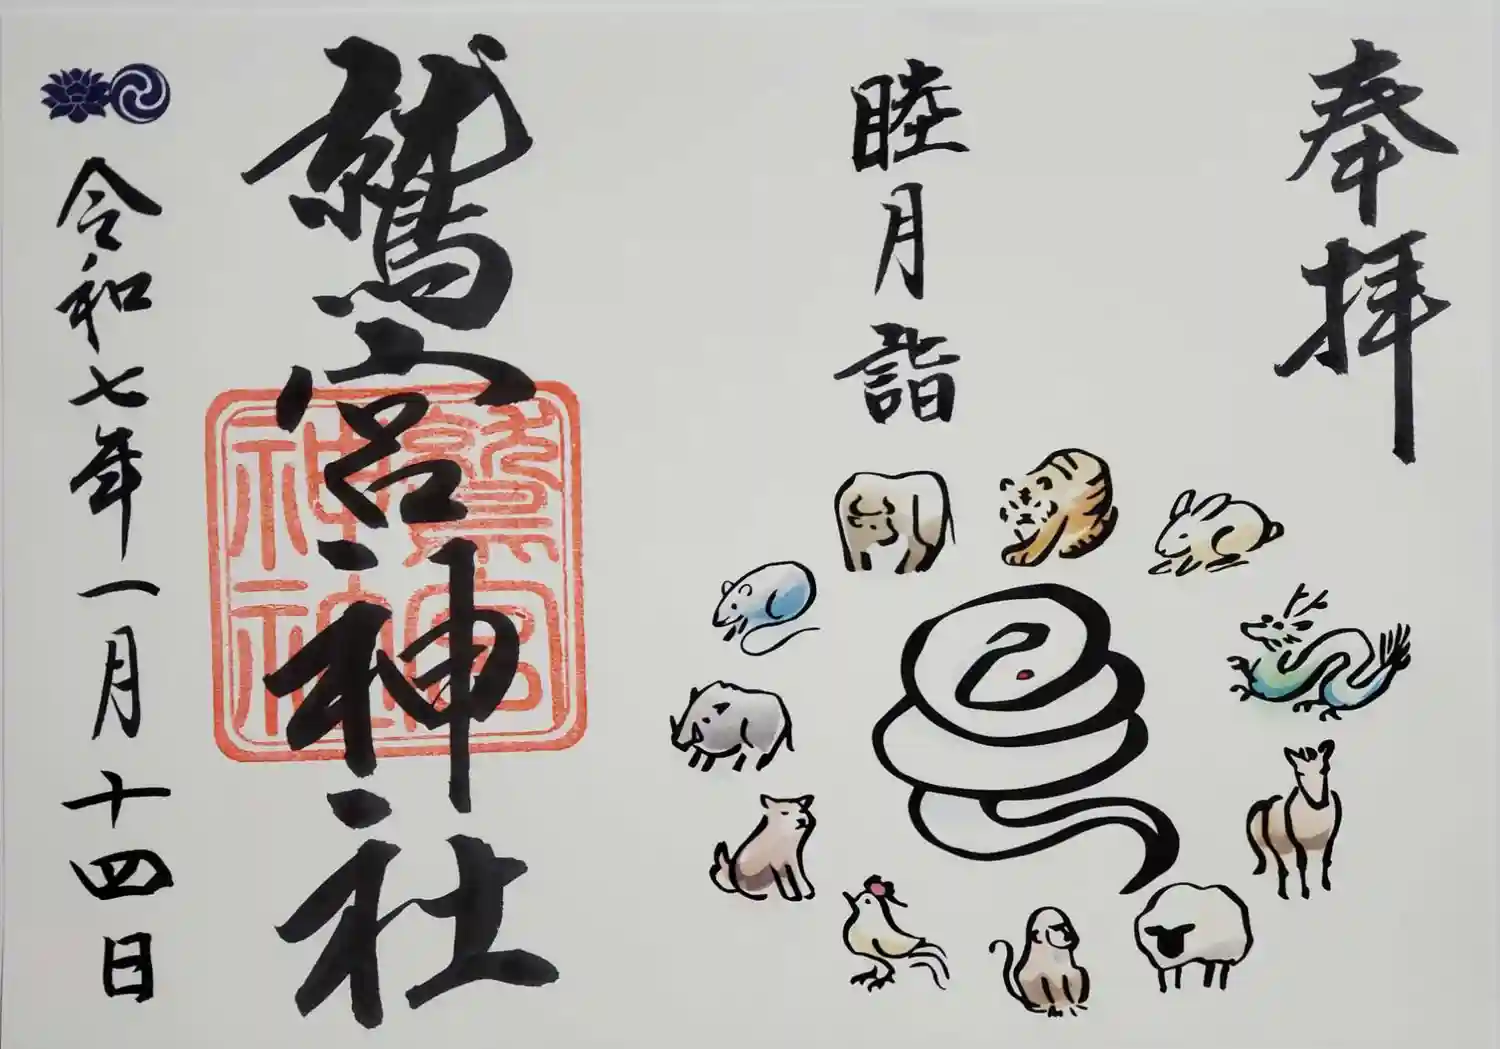 奉拝
睦月詣
鷲宮神社
鷲宮
神社
令和七年一月十四日